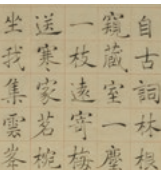 自古詞林根
窺藏室一塵
一枝遠寄梅
送寒家茗椀
坐我集雲峯